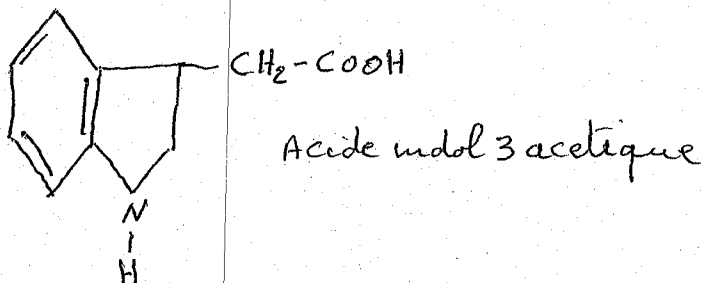 CH₂-COOH
Acide indol 3 acetique
N
H